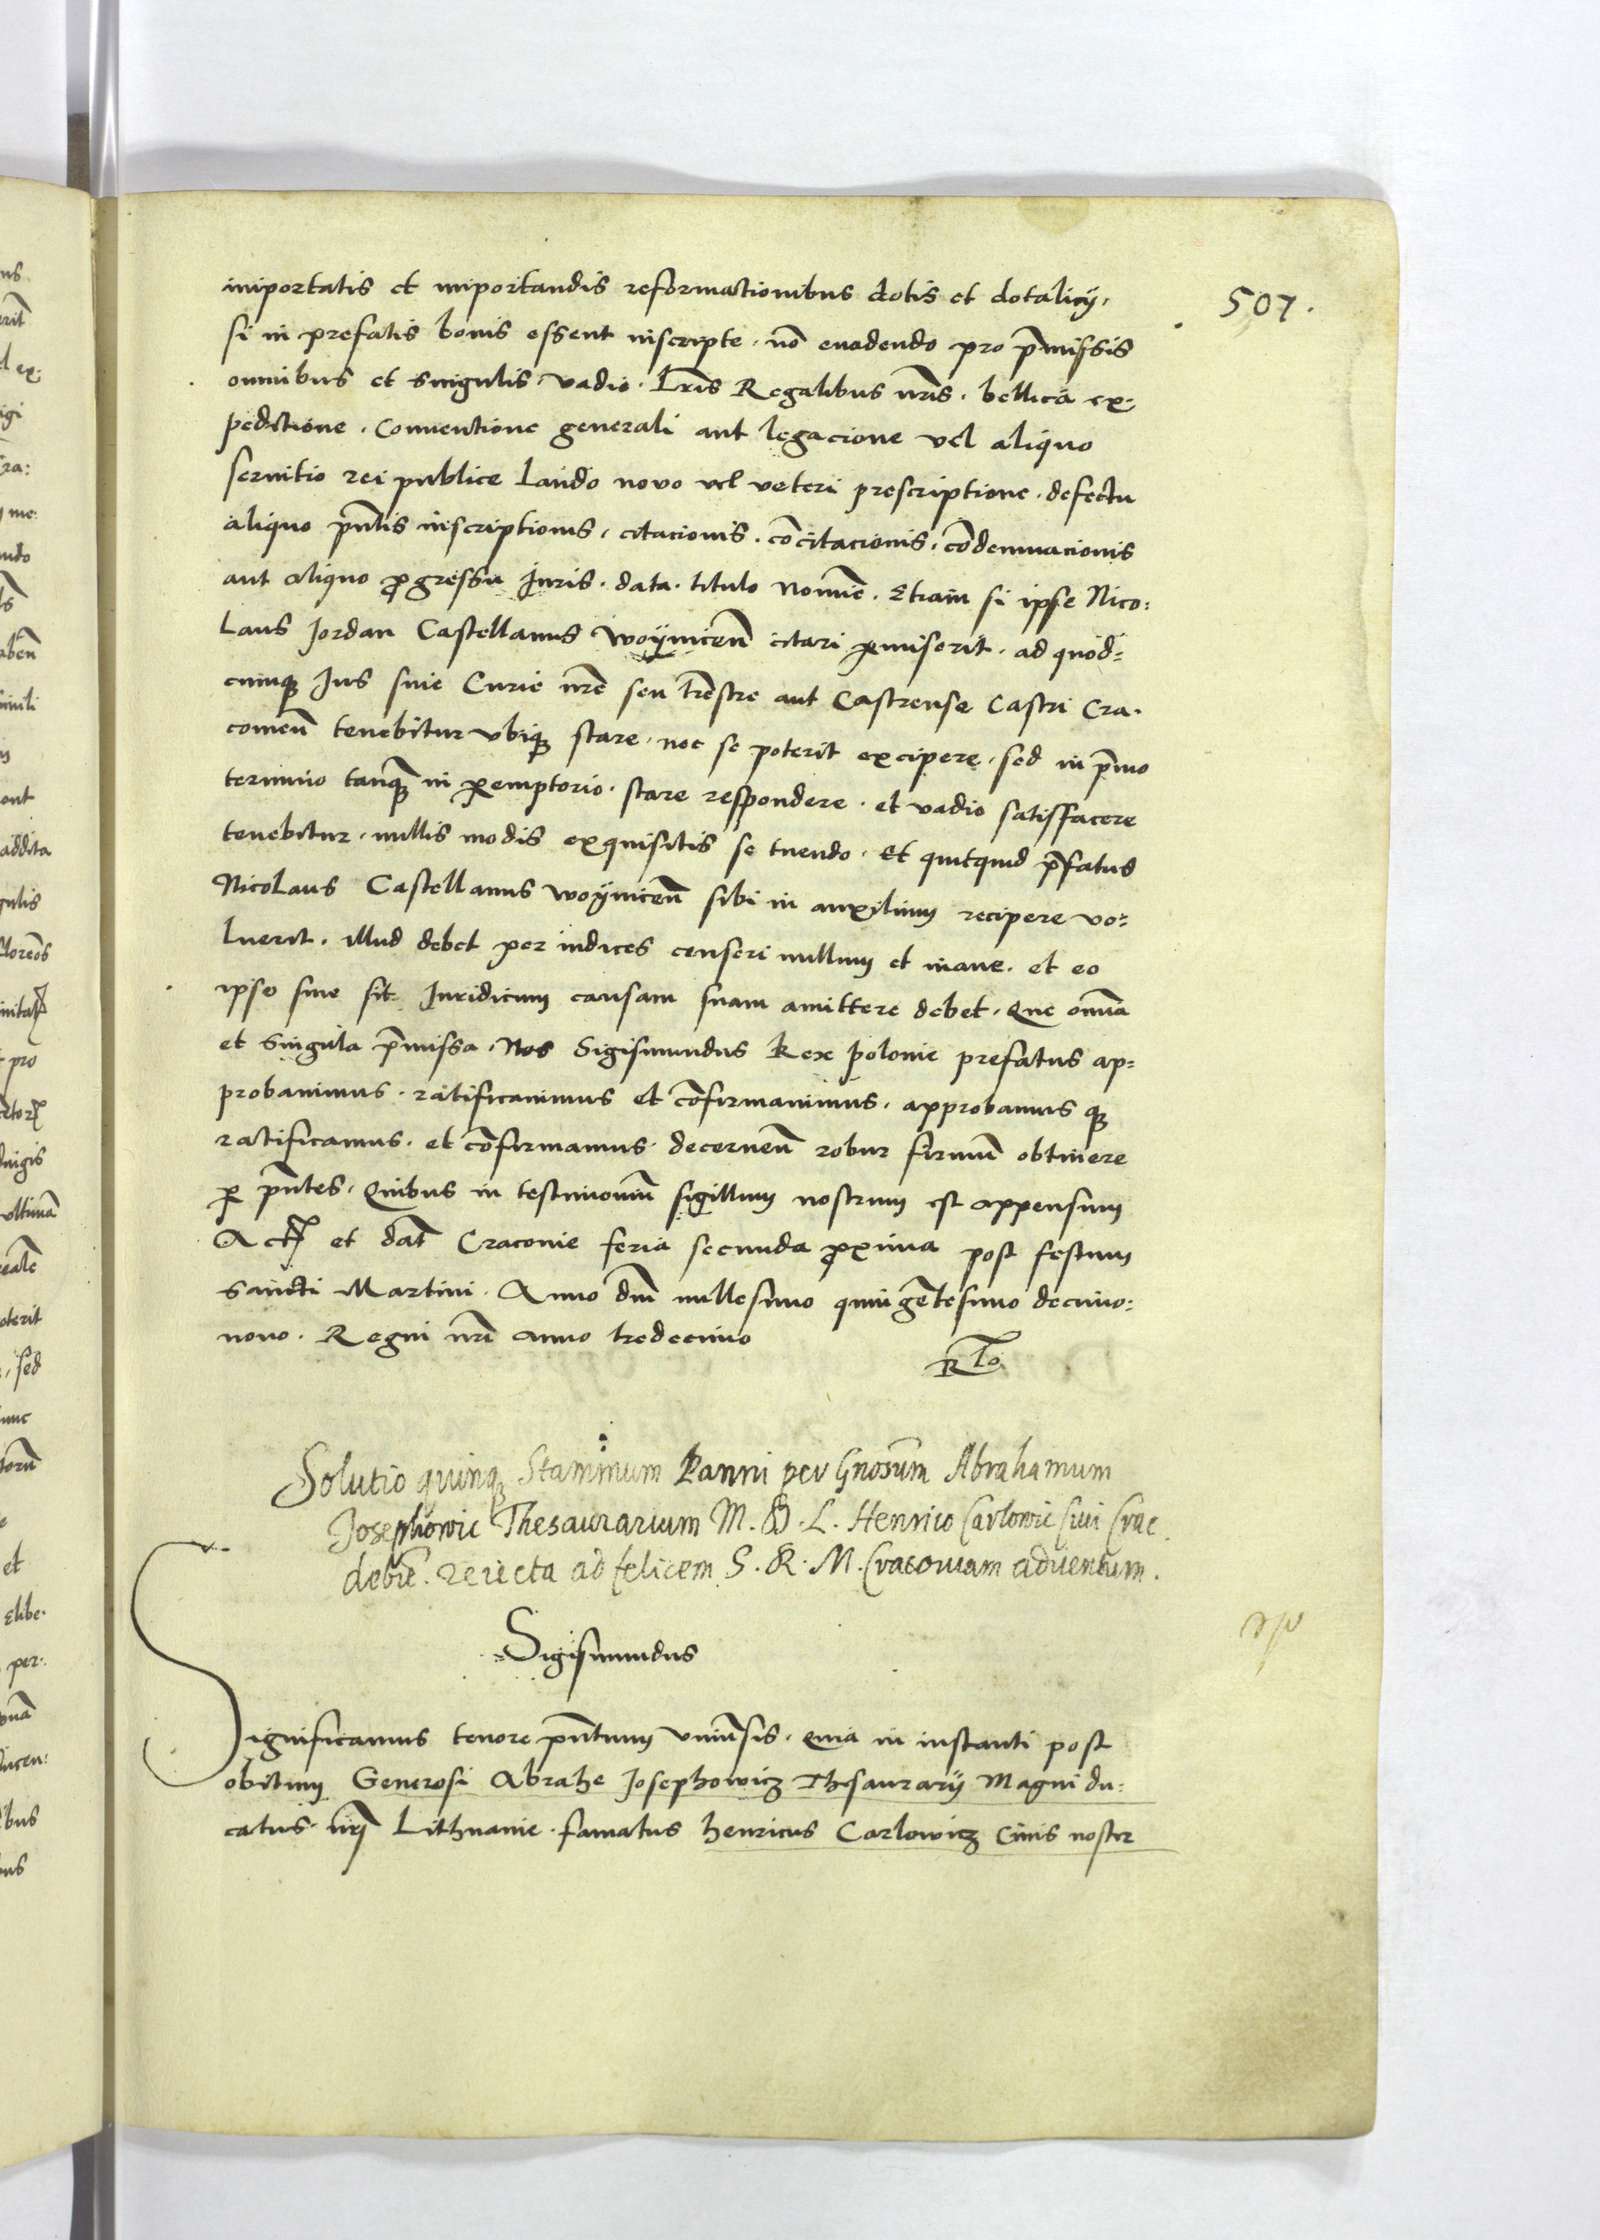 507.
importatis et importandis reformationibus dotis et dotalicÿ,
si in prefatis bonis essent inscripte. nō evadendo pro p̄missis
omnibus et singulis vadio. Lr̄is Regalibus nr̄is. bellica ex-
peditione. Conventione generali aut legacione vel aliquo
servitio rei publice laudo novo vel veteri prescriptione. defectu
aliquo pn̄tis inscriptionis, citacionis. cōcitacionis, cōdemnacionis
aut aliquo ꝓgressu Juris. data. titulo nomīe. Etiam si ipse Nico:
laus Jordan Castellanus woÿnicen̄ citari ꝑmiserit. ad quod=
cumqꝫ Jus sive Curie nr̄e seu tr̄estre aut Castrense Castri Cra-
covien̄ tenebitur ubiqꝫ stare. nec se poterit excipere, sed in p̄mo
termino tanqꝫ in ꝑemptorio. stare respondere. et vadio satisfacere
tenebitur. nullis modis exquisitis se tuendo. Et quitquid p̄fatus
Nicolaus Castellanus woÿnicen̄ sibi in auxilium recipere vo=
luerit. illud debet per iudices censeri nullum et inane. et eo
ipso sive sit Juridicum causam suam amittere debet. Que om̄ia
et singula p̄missa. Nos Sigismundus Rex Polonie prefatus ap=
probavimus. ratificavimus et cōfirmavimus. approbamus qꝫ
ratificamus. et cōfirmamus. decernen̄ robur firmū obtinere
ꝑ pn̄tes. Quibus in testimoniū sigillum nostrum est appensum
Actꝫ et dat̄ Cracovie feria secunda ꝓxima post festum
Sancti Martini. Anno dn̄i millesimo quingētesimo decimo:
nono. Regni nr̄i anno tredecimo
Rt̄o
Solutio quinqꝫ Staminum Panni per Gn̄osum Abrahamum
Josephowic Thesaurarium M. D. L. Henrico Carlowic Civi Crac.
debit̄. reiecta ad felicem S. R. M. Cracoviam adventum.
Sigismundus
Significamus tenore pn̄tium univ̄sis. Quia in instanti post
obitum Generosi Abrahe Josephowicz Thesaurarÿ Magni du:
catus nr̄i Lithuanie. famatus henricus Carlowicz Civis noster